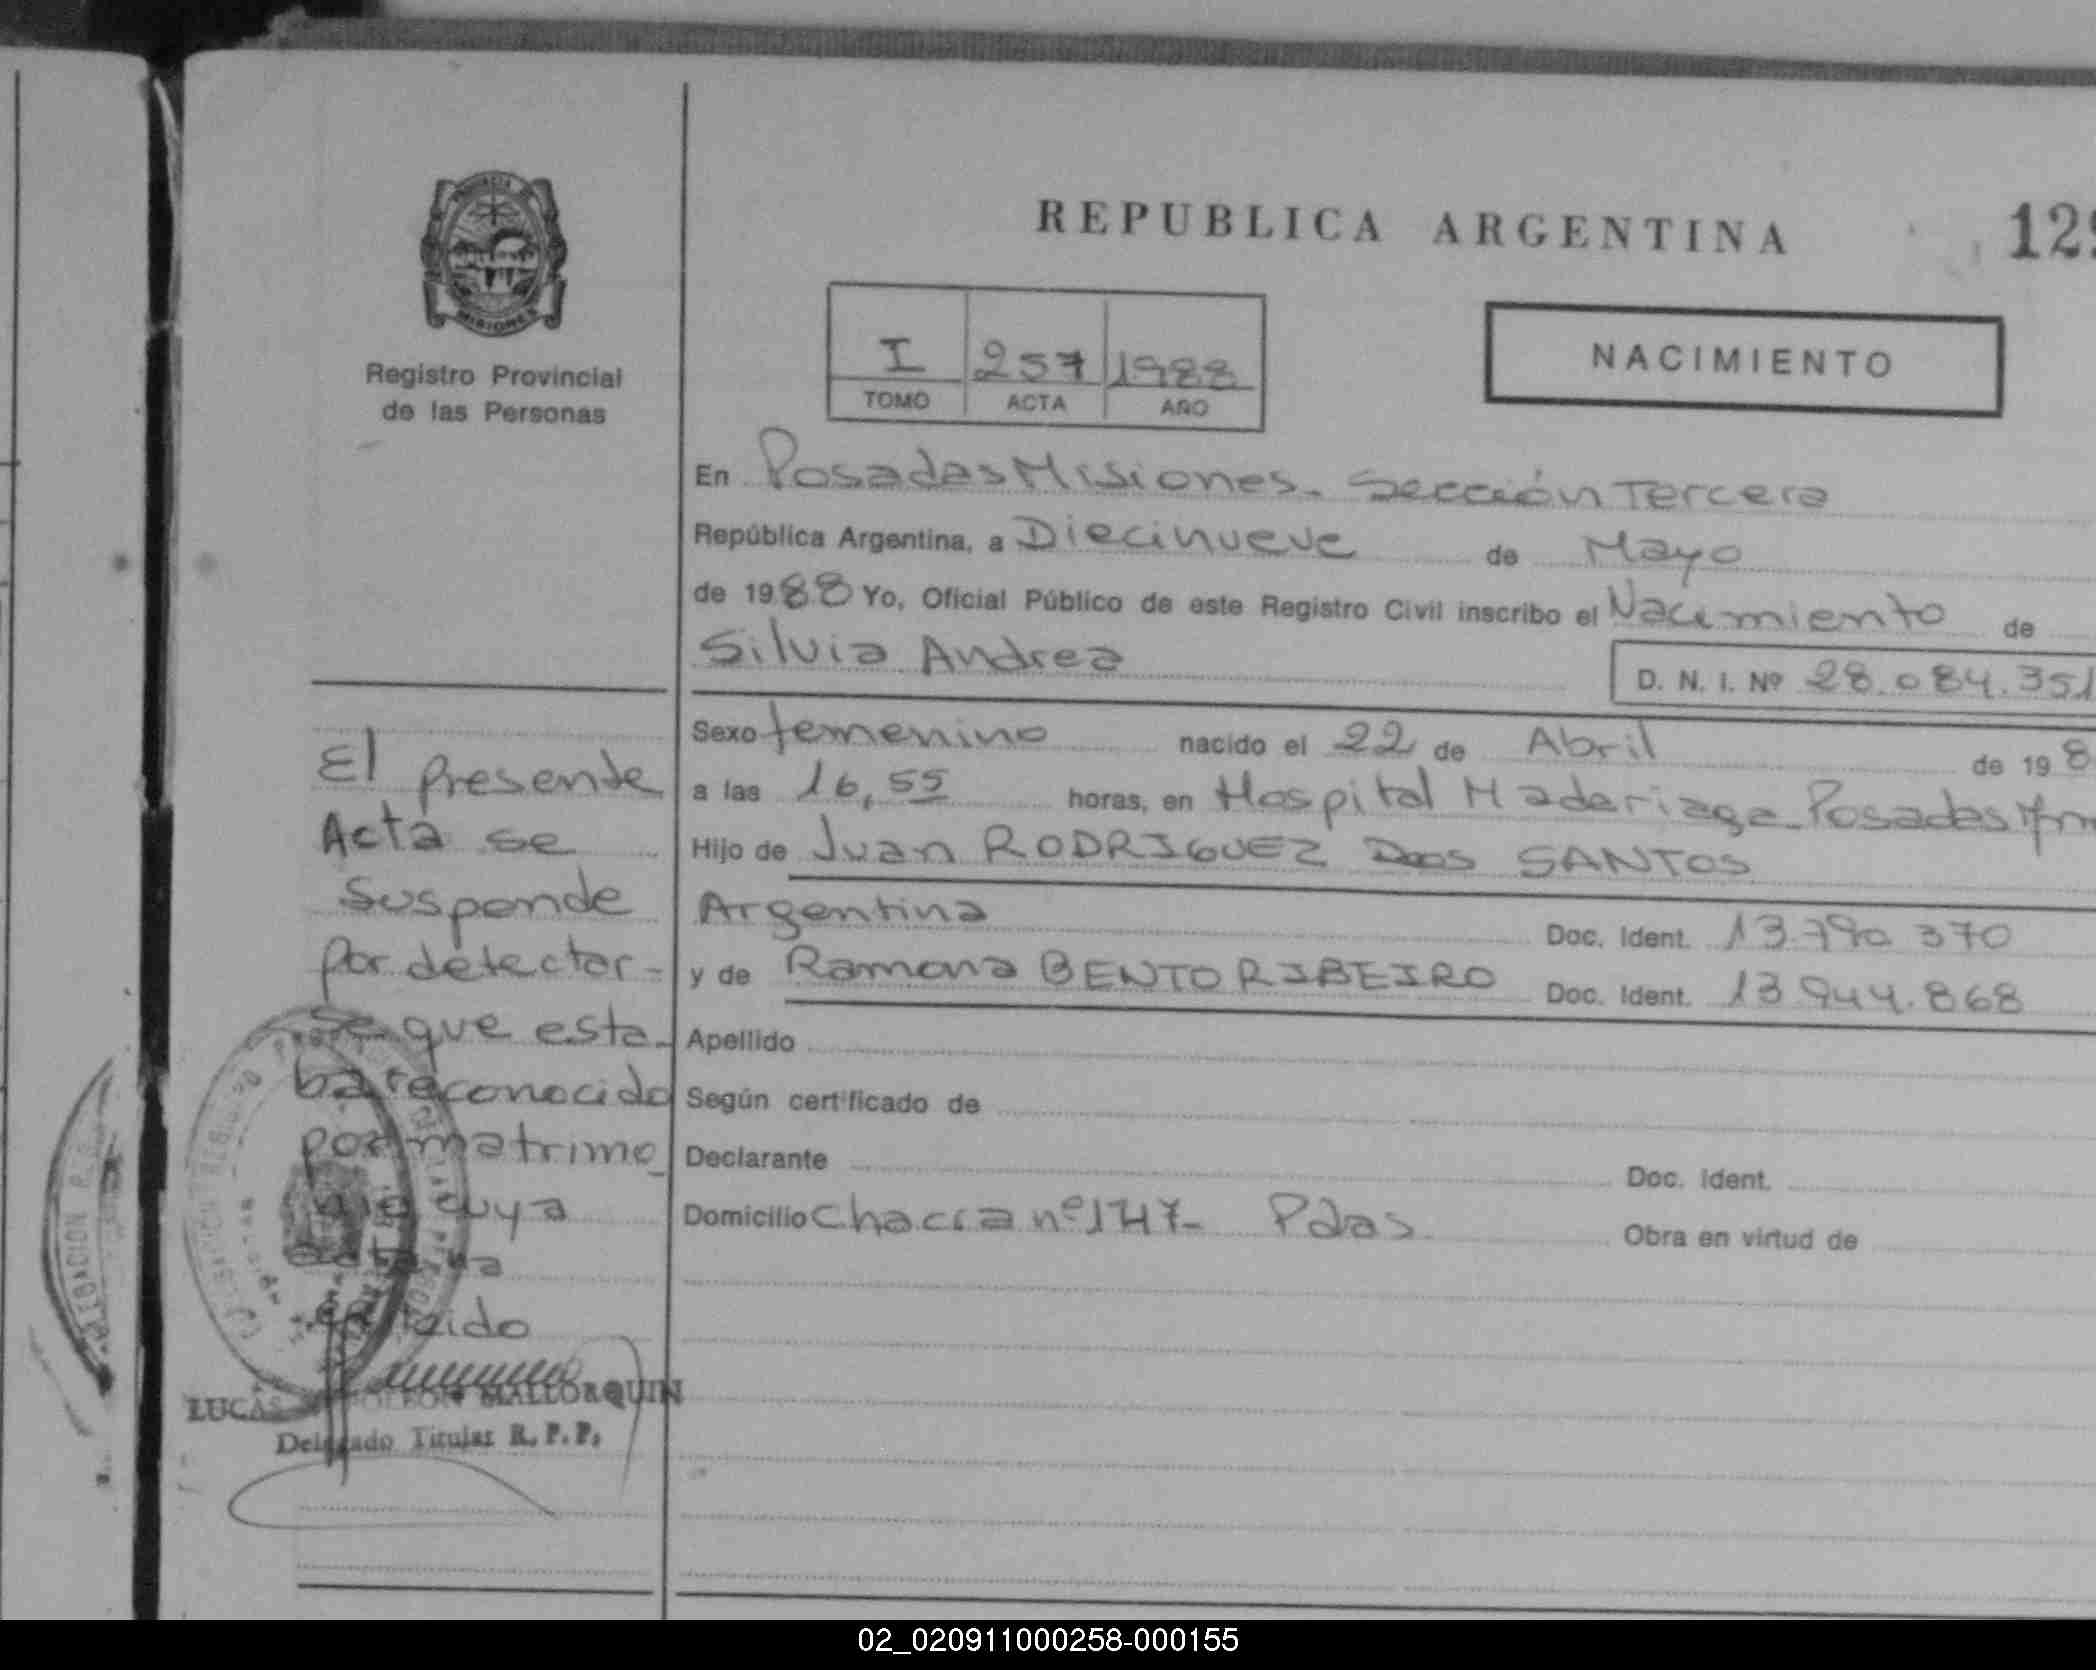 REPUBLICA ARGENTINA
MISIONES
Registro Provincial
de las Personas
I 257 1988
TOMO ACTA AÑO
NACIMIENTO
En Posadas Misiones. Sección Tercera
República Argentina, a Diecinueve de Mayo
de 1988 Yo, Oficial Público de este Registro Civil inscribo el Nacimiento de
Silvia Andrea
D. N. I. Nº 28.084.351
Sexo femenino nacido el 22 de Abril de 198
a las 16,55 horas, en Hospital Madariaga. Posadas
Hijo de Juan RODRIGUEZ Dos SANTOS
Argentina Doc. Ident. 13.790.370
y de Ramona BENTO RIBEIRO Doc. Ident. 13.944.868
Apellido
Según certificado de
Declarante Doc. Ident.
Domicilio Chacra nº 147- Pdas. Obra en virtud de
El presente
Acta se
suspende
por detectar-
se que esta-
ba reconocido
por matrimo_
nio cuya
LUCAS NAPOLEON MALLORQUIN
Delegado Titular R. P. P.
02_020911000258-000155